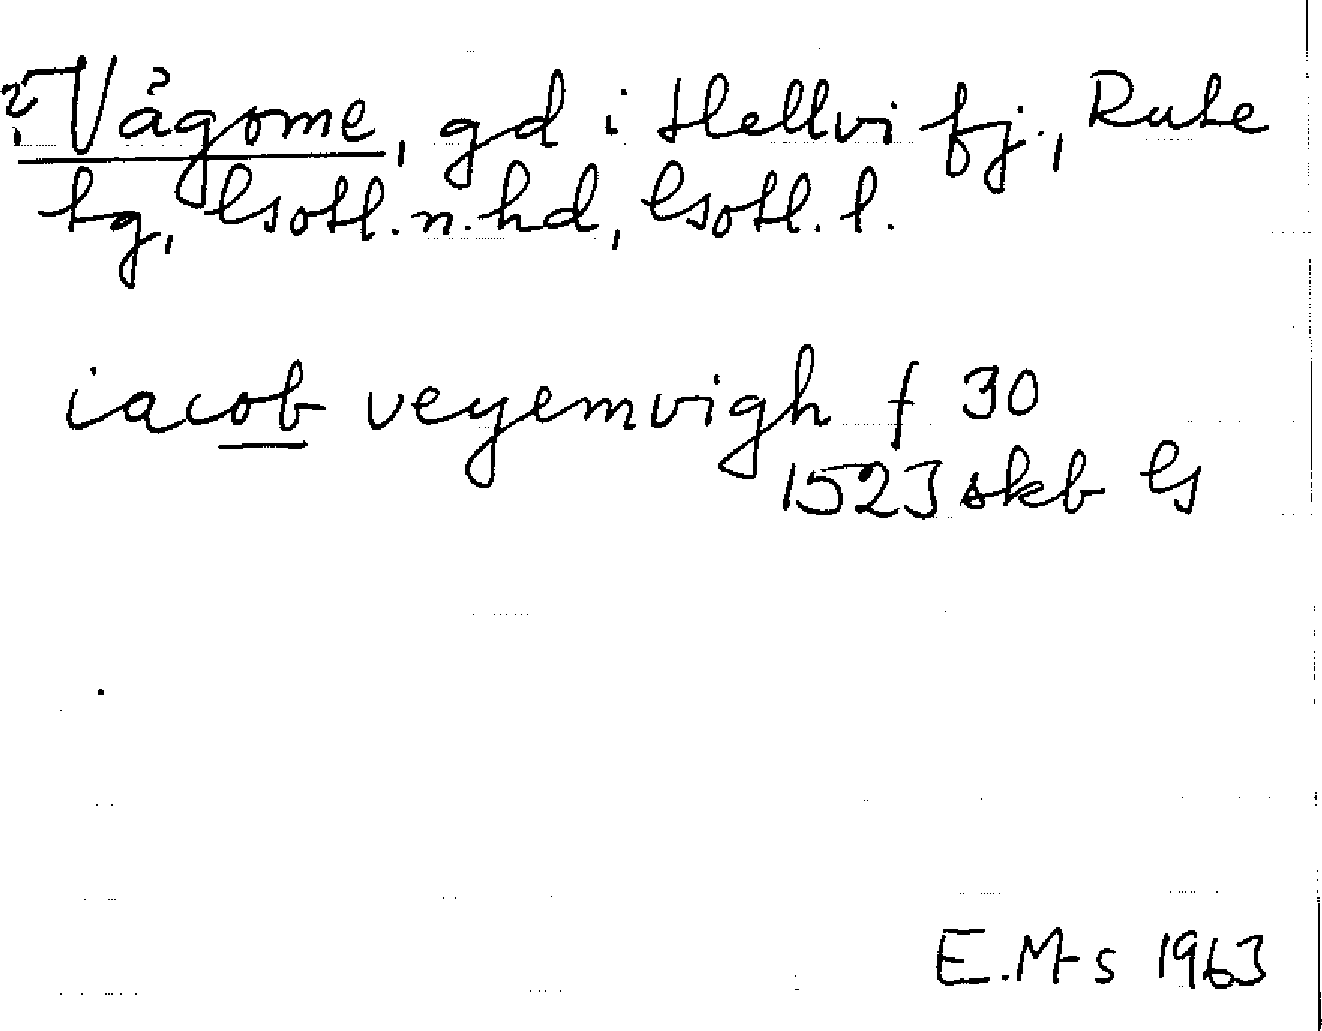 ? Vågome, gd i Hellvi fj., Rute
tg, Gotl. n. hd, Gotl. l.
iacob veyemvigh f 30
1523 skb G
E. M-s 1963